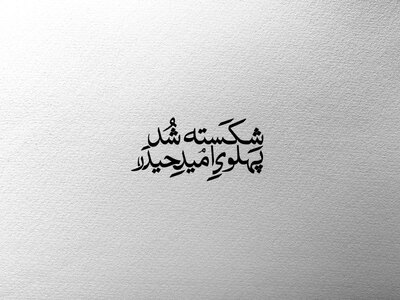 شِکَسته شُد
پَهلویِ اُمیدِ حیدَر